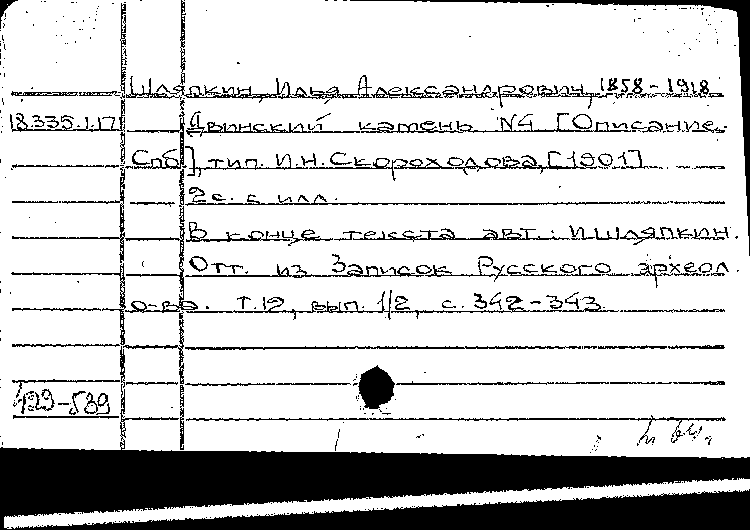 Шляпкин, Илья Александрович, 1858-1918
18.335.1.17 Двинский камень N4 [Описание.
Спб], тип. И.Н.Скороходова, [1901]
2с. с илл.
В конце текста авт.: И.Шляпкин.
Отт. из Записок Русского археол.
о-ва. Т.12, вып. 1/2, с. 342-343
429-589